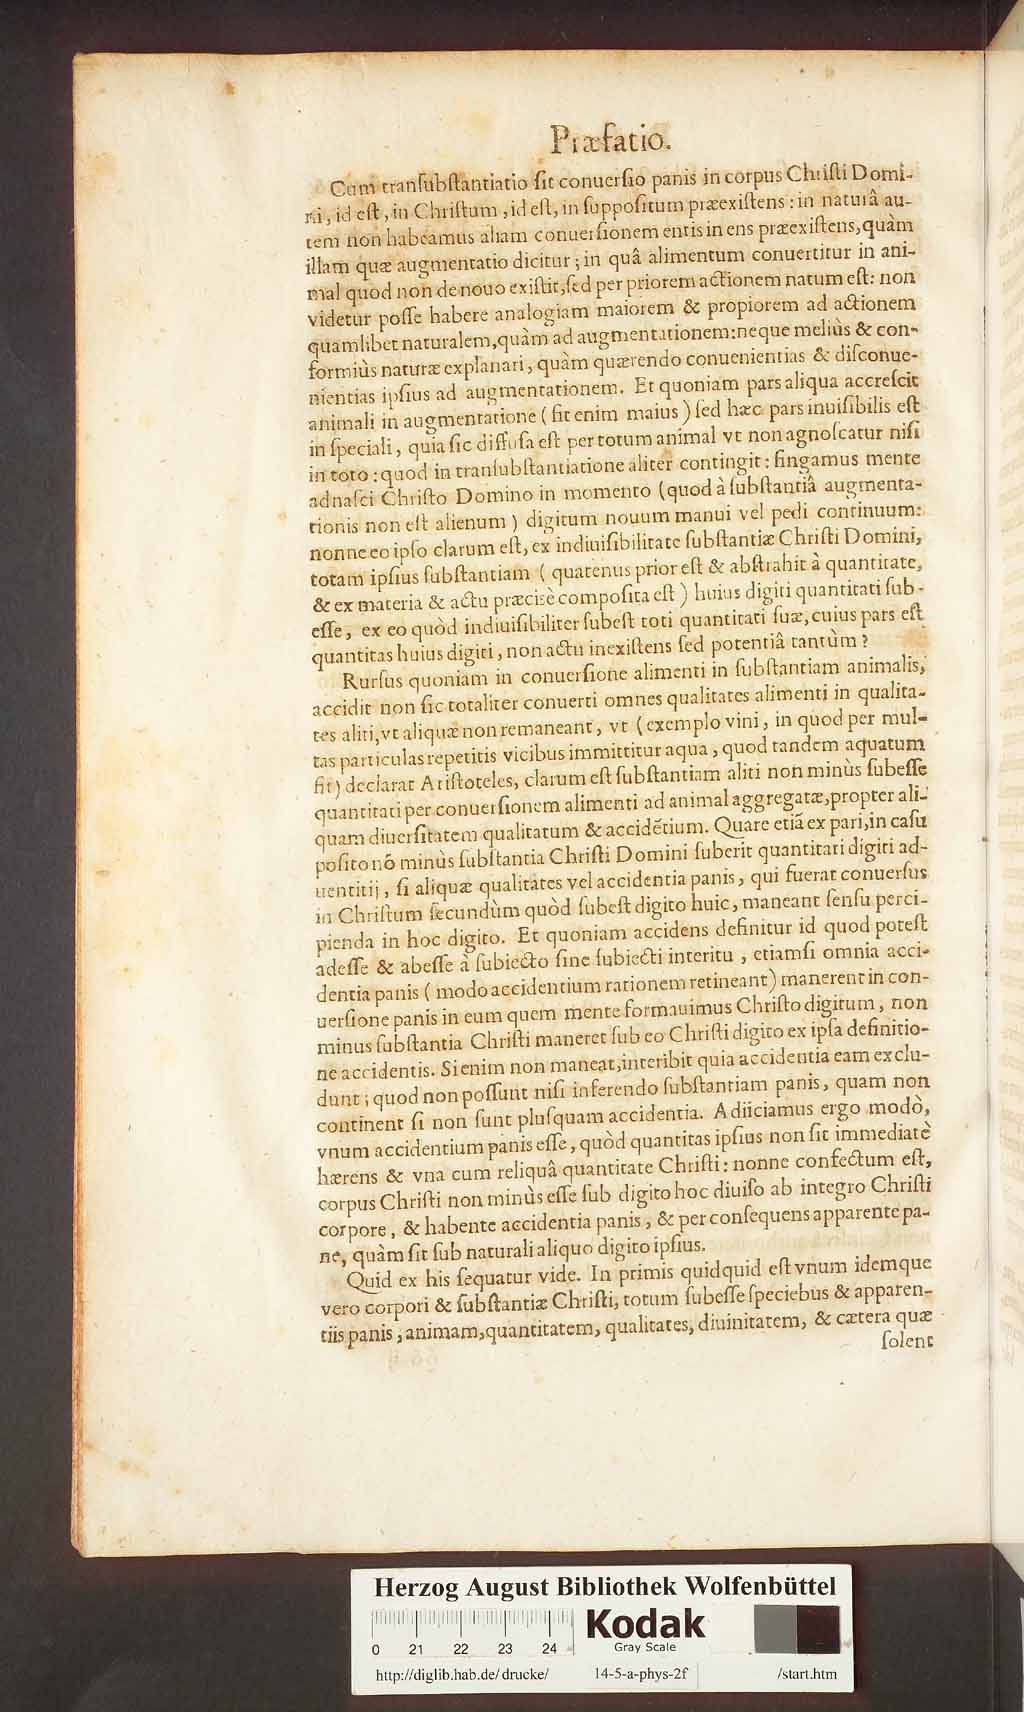 Præfatio.
Cum tranſubſtantiatio ſit conuerſio panis in corpus Chriſti Domi-
ni, id eſt, in Chriſtum, id eſt, in ſuppoſitum præexiſtens: in naturâ au-
tem non habeamus aliam conuerſionem entis in ens præexiſtens, quàm
illam quæ augmentatio dicitur; in quâ alimentum conuertitur in ani-
mal quod non de nouo exiſtit, ſed per priorem actionem natum eſt: non
videtur poſſe habere analogiam maiorem & propiorem ad actionem
quamlibet naturalem, quàm ad augmentationem: neque meliùs & con-
formiùs naturæ explanari, quàm quærendo conuenientias & diſconue-
nientias ipſius ad augmentationem. Et quoniam pars aliqua accreſcit
animali in augmentatione (ſit enim maius) ſed hæc pars inuiſibilis eſt
in ſpeciali, quia ſic diffuſa eſt per totum animal vt non agnoſcatur niſi
in toto: quod in tranſubſtantiatione aliter contingit: fingamus mente
adnaſci Chriſto Domino in momento (quod à ſubſtantiâ augmenta-
tionis non eſt alienum) digitum nouum manui vel pedi continuum:
nonne eo ipſo clarum eſt, ex indiuiſibilitate ſubſtantiæ Chriſti Domini,
totam ipſius ſubſtantiam (quatenus prior eſt & abſtrahit à quantitate,
& ex materia & actu præcisè compoſita eſt) huius digiti quantitati ſub-
eſſe, ex eo quòd indiuiſibiliter ſubeſt toti quantitati ſuæ, cuius pars eſt
quantitas huius digiti, non actu inexiſtens ſed potentiâ tantùm?
Rurſus quoniam in conuerſione alimenti in ſubſtantiam animalis,
accidit non ſic totaliter conuerti omnes qualitates alimenti in qualita-
tes aliti, vt aliquæ non remaneant, vt (exemplo vini, in quod per mul-
tas particulas repetitis vicibus immittitur aqua, quod tandem aquatum
fit) declarat Ariſtoteles, clarum eſt ſubſtantiam aliti non minùs ſubeſſe
quantitati per conuerſionem alimenti ad animal aggregatæ, propter ali-
quam diuerſitatem qualitatum & accidẽtium. Quare etiã ex pari, in caſu
poſito nõ minùs ſubſtantia Chriſti Domini ſuberit quantitati digiti ad-
uentitij, ſi aliquæ qualitates vel accidentia panis, qui fuerat conuerſus
in Chriſtum ſecundùm quòd ſubeſt digito huic, maneant ſenſu perci-
pienda in hoc digito. Et quoniam accidens definitur id quod poteſt
adeſſe & abeſſe à ſubiecto ſine ſubiecti interitu, etiamſi omnia acci-
dentia panis (modo accidentium rationem retineant) manerent in con-
uerſione panis in eum quem mente formauimus Chriſto digitum, non
minus ſubſtantia Chriſti maneret ſub eo Chriſti digito ex ipſa definitio-
ne accidentis. Si enim non maneat, interibit quia accidentia eam exclu-
dunt; quod non poſſunt niſi inferendo ſubſtantiam panis, quam non
continent ſi non ſunt pluſquam accidentia. Adiiciamus ergo modò,
vnum accidentium panis eſſe, quòd quantitas ipſius non ſit immediatè
hærens & vna cum reliquâ quantitate Chriſti: nonne confectum eſt,
corpus Chriſti non minùs eſſe ſub digito hoc diuiſo ab integro Chriſti
corpore, & habente accidentia panis, & per conſequens apparente pa-
ne, quàm ſit ſub naturali aliquo digito ipſius.
Quid ex his ſequatur vide. In primis quidquid eſt vnum idemque
vero corpori & ſubſtantiæ Chriſti, totum ſubeſſe ſpeciebus & apparen-
tiis panis, animam, quantitatem, qualitates, diuinitatem, & cætera quæ
ſolent
Herzog August Bibliothek Wolfenbüttel
Kodak
Gray Scale
0 21 22 23 24
http://diglib.hab.de/drucke/ 14-5-a-phys-2f /start.htm